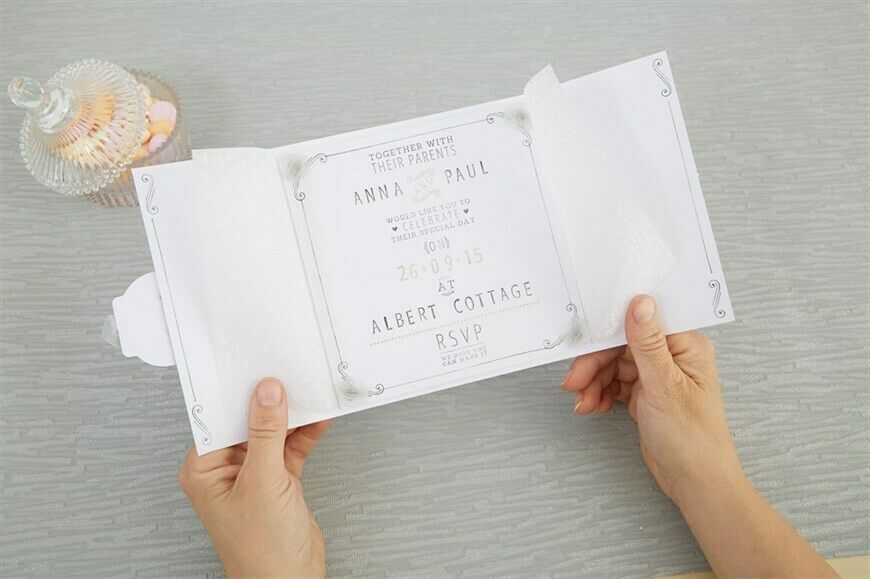 TOGETHER WITH
THEIR PARENTS
ANNA AND PAUL
WOULD LIKE YOU TO
CELEBRATE
THEIR SPECIAL DAY
(ON)
26·09·15
AT
ALBERT COTTAGE
RSVP
WE HOPE YOU
CAN MAKE IT